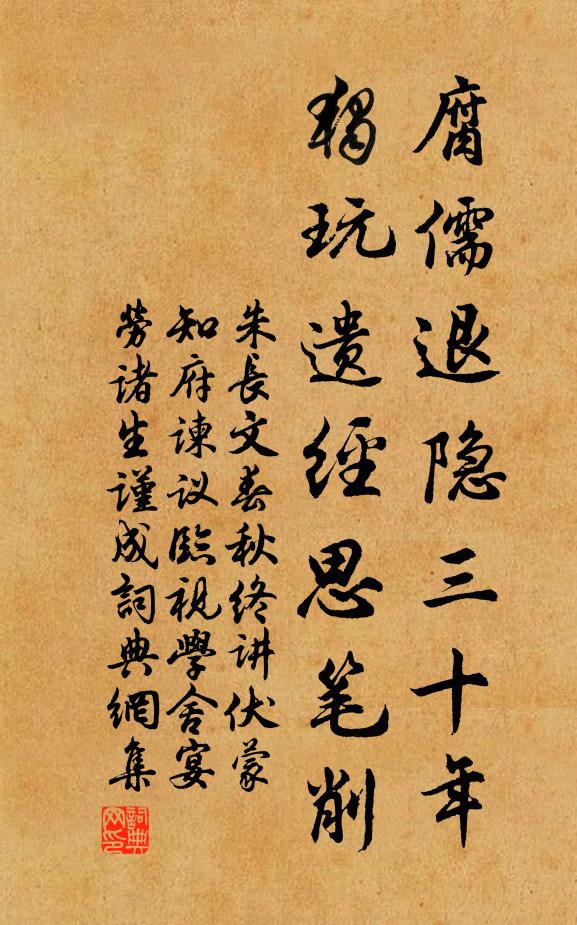 腐儒退隐三十年
独玩遗經思笔削
朱長文春秋终讲伏蒙
知府谏议臨視學舍宴
劳诸生谨成詞典網集
詞典网印